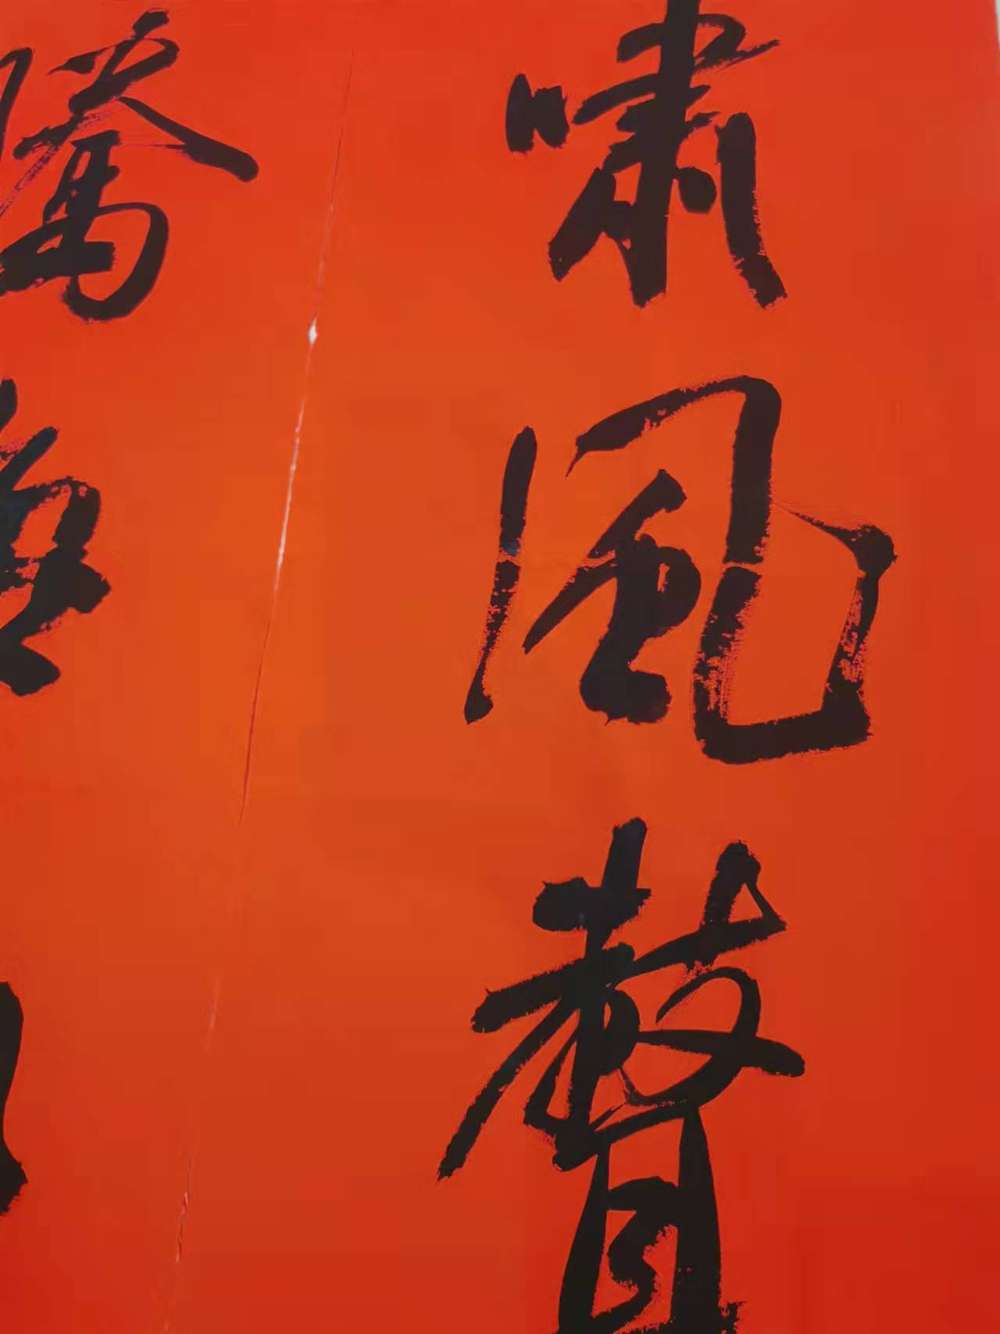 嘯風聲
騰